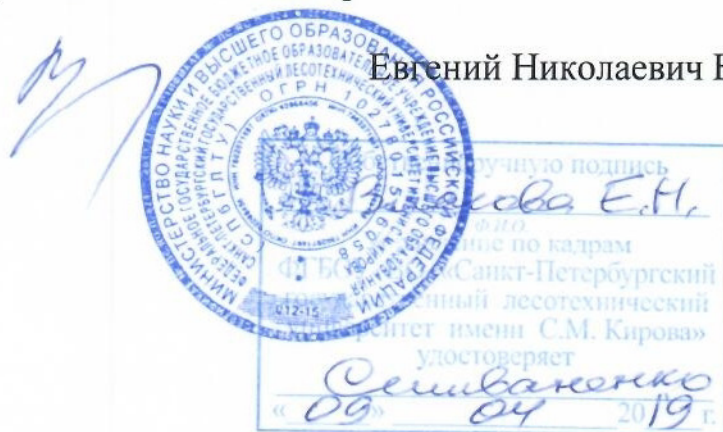 Евгений Николаевич В
МИНИСТЕРСТВО НАУКИ И ВЫСШЕГО ОБРАЗОВАНИЯ РОССИЙСКОЙ ФЕДЕРАЦИИ
ФЕДЕРАЛЬНОЕ ГОСУДАРСТВЕННОЕ БЮДЖЕТНОЕ ОБРАЗОВАТЕЛЬНОЕ УЧРЕЖДЕНИЕ ВЫСШЕГО ОБРАЗОВАНИЯ
САНКТ-ПЕТЕРБУРГСКИЙ ГОСУДАРСТВЕННЫЙ ЛЕСОТЕХНИЧЕСКИЙ УНИВЕРСИТЕТ
(СПбГЛТУ) ОГРН
012-15
ручную подпись
Е.Н.
Ф.И.О.
по кадрам
«Санкт-Петербургский
лесотехнический
имени С.М. Кирова»
удостоверяет
Селиваненко
«09» 04 2019 г.